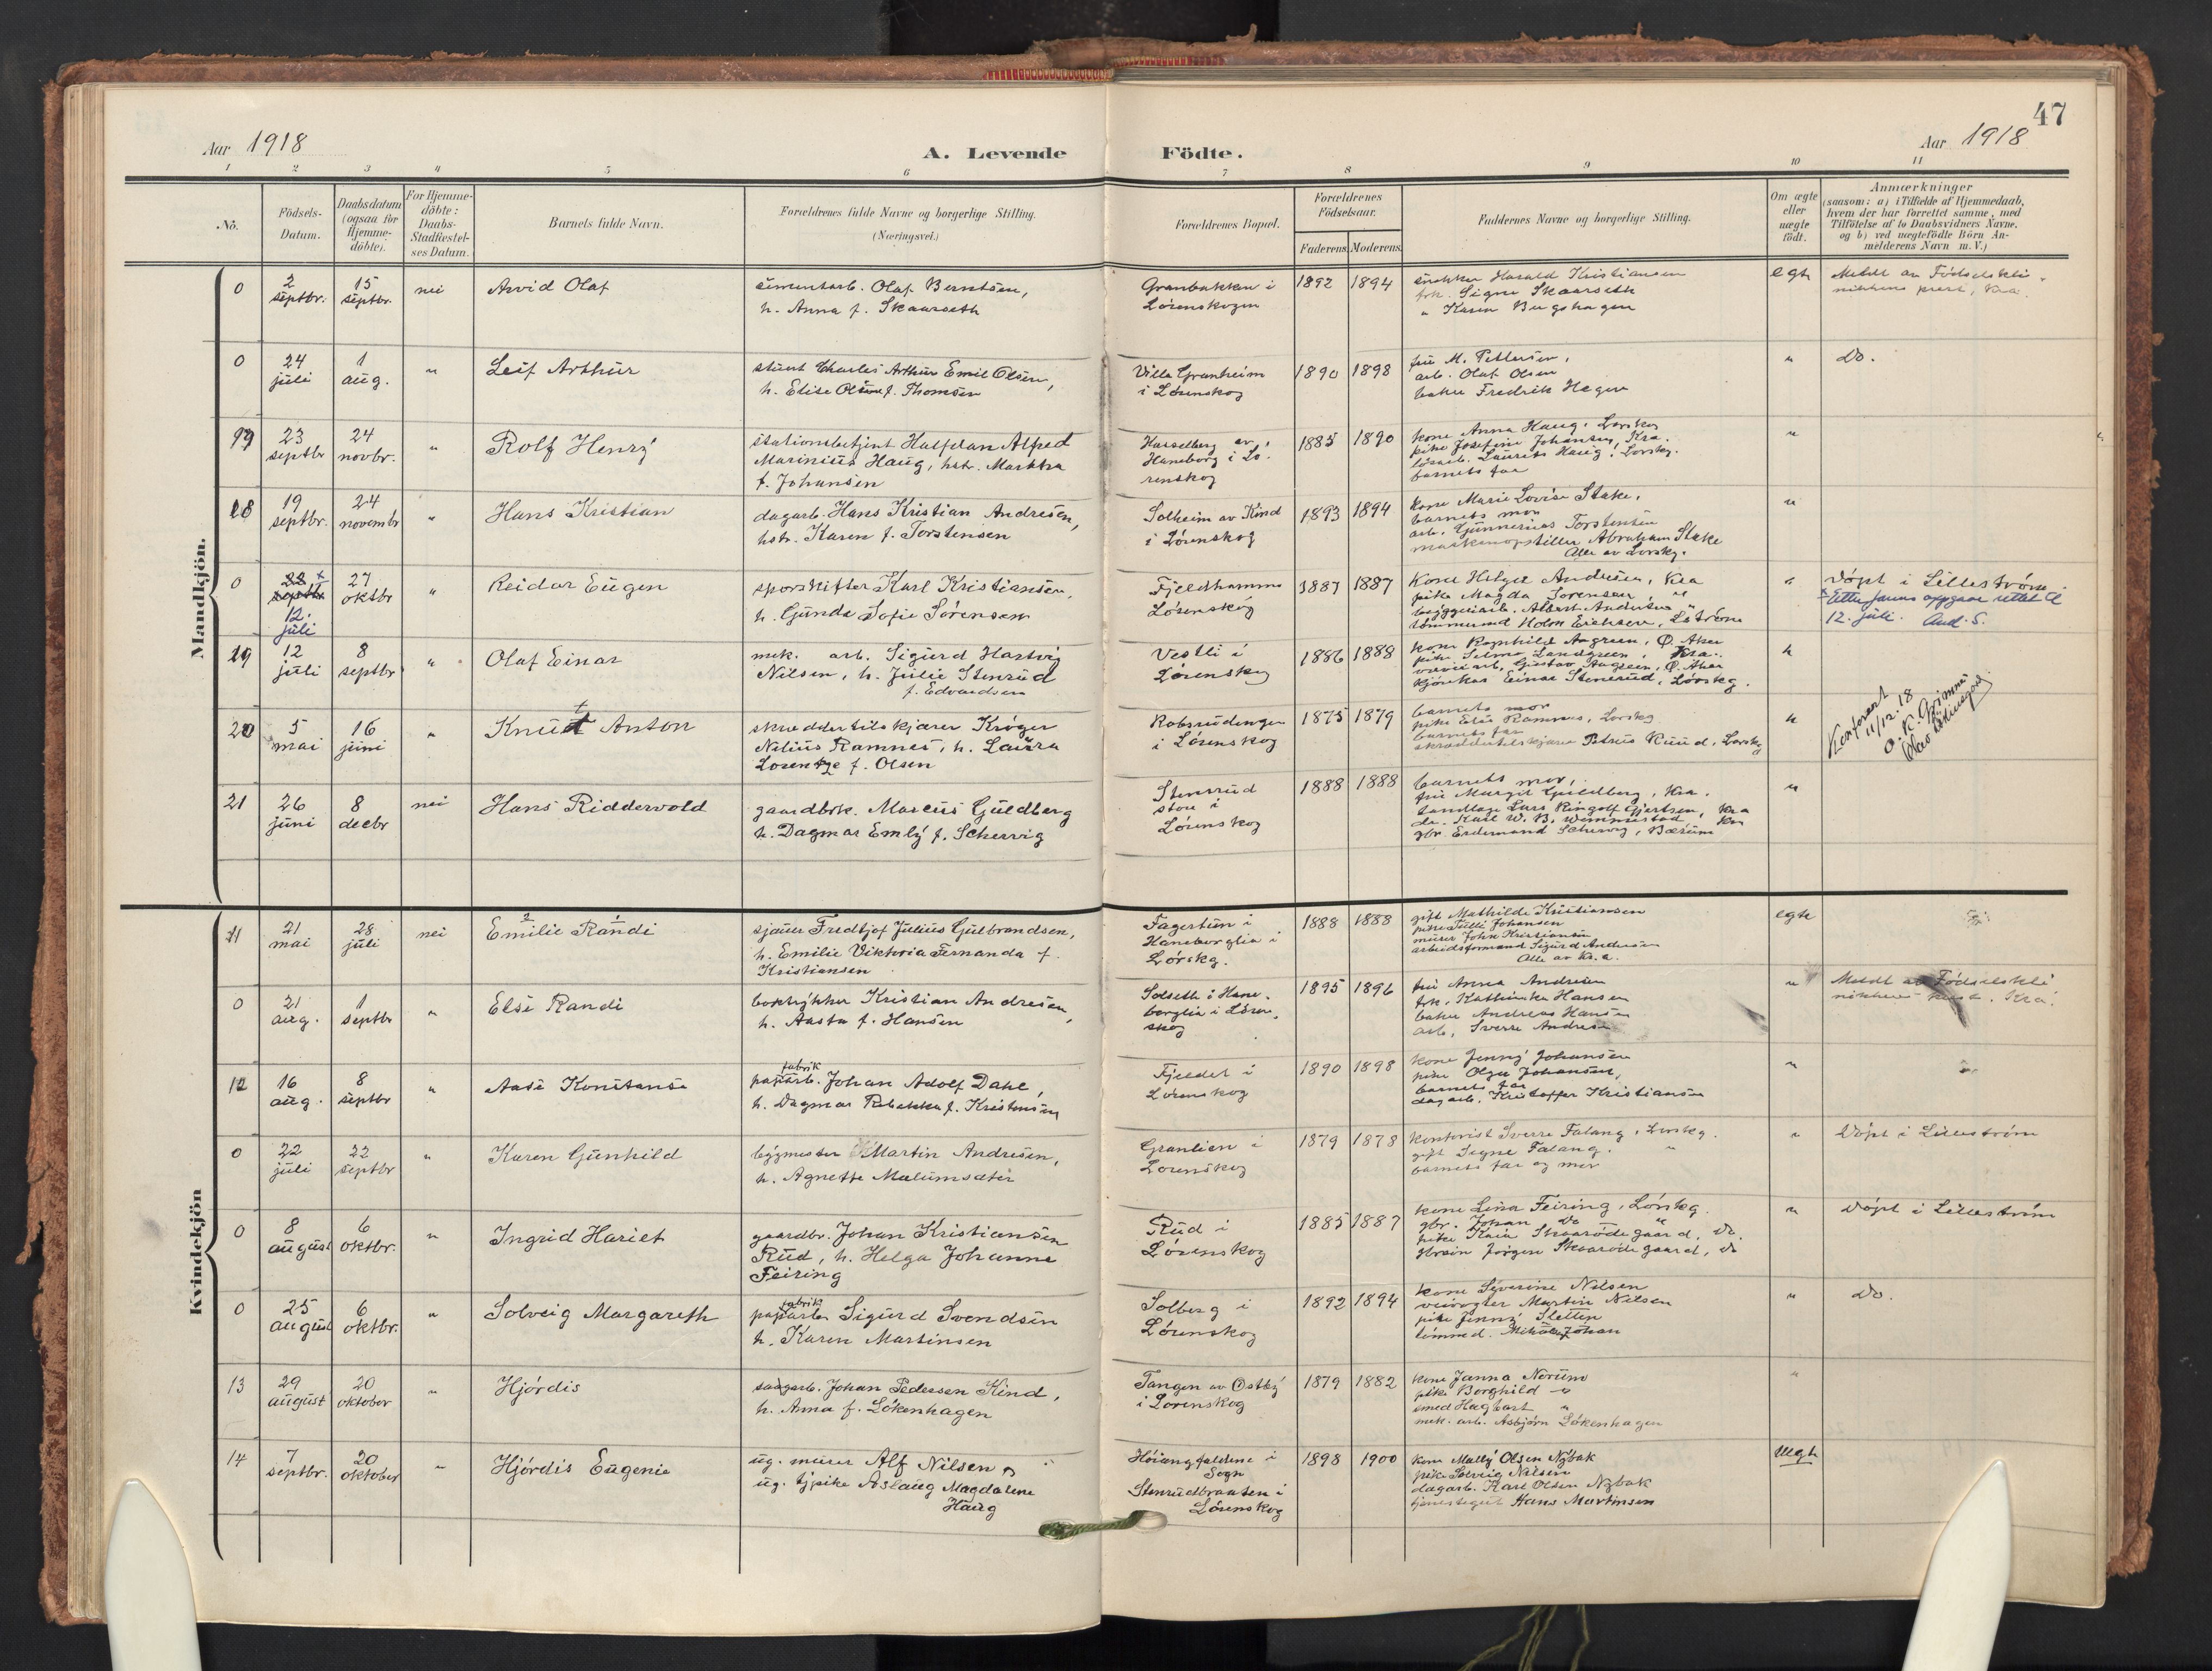 47
Aar 1918
A. Levende Födte.
Aar 1918
1 2 3 4 5 6 7 8 9 10 11
No.
Födsels-
Datum.
Daabsdatum
(ogsaa for
Hjemme-
döbte).
For Hjemme-
döbte:
Daabs-
Stadfæstel-
ses Datum.
Barnets fulde Navn.
Forældrenes fulde Navne og borgerlige Stilling.
(Næringsvei.)
Forældrenes Bopæl.
Forældrenes
Födselsaar.
Faderens. Moderens.
Faddernes Navne og borgerlige Stilling.
Om ægte
eller
uægte
födt.
Anmærkninger
(saasom: a) i Tilfælde af Hjemmedaab,
hvem der har forrettet samme, med
Tilföielse af to Daabsvidners Navne,
og b) ved uægtefödte Börn An-
melderens Navn m. V.)
Mandkjön.
0
2
septbr.
15
septbr.
nei
Arvid Olaf
sementarb. Olaf Berntsen,
h. Anna f. Skaarseth
Granbakken i
Lørenskogen
1892 1894
snekker Harald Kristiansen
frk. Signe Skaarseth
" Karen Bugshagen
egte
Meldt av Fødselskli-
nikkens prest, Kra.
0
24
juli
1
aug.
"
Leif Arthur
stuert Charles Arthur Emil Olsen,
h. Elise Olsen f. Thomsen
Villa Granheim
i Lørenskog
1890 1898
fru M. Pettersen,
arb. Olaf Olsen
baker Fredrik Hegen
"
Do.
23
septbr
24
novbr.
"
Rolf Henry
stationsbetjent Halfdan Alfred
Marinius Haug, hstr. Martha
f. Johansen
Hasselberg av
Haneborg i Lø-
renskog
1885 1890
kone Anna Haug, Lørskog
pike Josefine Johansen, Kra.
løsarb. Laurits Haug, Lørskg.
barnets far
"
18
19
septbr.
24
novembr
"
Hans Kristian
dagarb. Hans Kristian Andresen,
hstr. Karen f. Torstensen
Solheim av Kind
i Lørenskog
1893 1894
kone Marie Lovise Stake,
barnets mor
arb. Gunnerius Torstensen
maskinopstiller Abraham Stake
Alle av Lørskg.
"
0
22 x
septbr
12.
juli
27
oktbr
"
Reidar Eugen
sporskifter Karl Kristiansen,
h. Gunda Sofie Sørensen
Fjeldhammer
Lørenskog
1887 1887
Kone Helga Andresen, Kra
pike Magda Sørensen "
byggeiarb. Albert Andersen "
tømmermd Holm Erichsen, L.strøm
"
Døpt i Lillestrøm
x Etter farens oppgave rettet til
12. juli. Aud. S.
19
12
juli
8
septbr
"
Olaf Einar
mek. arb. Sigurd Hartvig
Nilsen, h. Julie Stenrud
f. Edvardsen
Vestli i
Lørenskog
1886 1888
kone Ragnhild Angreen, Ø. Aker
pike Selma Landgreen, Kra.
veiviarb. Gustav Angreen, Ø. Aker
kjørekar Einar Stenrud, Lørskg.
"
20
5
mai
16
juni
"
Knut Anton
skreddertilskjærer Krøger
Nelius Ramnes, h. Laura
Lorentze f. Olsen
Robsrudengen
i Lørenskog
1875 1879
barnets mor
pike Else Ramnes, Lørskg
barnets far
skræddertilskjærer Petrus Ruud, Lørskg
"
Konferert
11/12.18
O. K. Grimnes
21
26
juni
8
decbr
nei
Hans Ridderwold
gaardbrk. Marcus Guldberg
h. Dagmar Emly f. Schervig
Stenrud
store i
Lørenskog
1888 1888
barnets mor,
fru Margit Guldberg, Kra.
tandlæge Lars Ringolf Gjertsen, Kra
do. Karl W. B. Wennerstad, Kra
gbr. Erdemand Schervig, Bærum
"
Kvindekjön
11
21
mai
28
juli
nei
2 1
Emilie Randi
sjauer Fredtjof Julius Gulbrandsen,
h. Emilie Viktoria Fernanda f.
Kristiansen
Fagertun i
Haneborglia i
Lørskg.
1888 1888
gift Mathilde Kristiansen
pike Tulli Johansen
murer John Kristiansen
arbeidsformand Sigurd Andersen
Alle av Kr.a.
egte
0
21
aug.
1
septbr
"
Else Randi
boktrykker Kristian Andresen,
h. Aasta f. Hansen
Solseth i Hane-
borglia i Løren-
skog
1895 1896
fru Anna Andresen
frk. Kathinka Hansen
baker Andreas Hansen
arb. Sverre Andresen
"
Meldt av Fødselskli
nikkens prest. Kra.
12
16
aug.
8
septbr
"
Aase Konstanse
fabrik
papirarb. Johan Adolf Dahl,
h. Dagmar Rebekka f. Kristensen
Fjeldet i
Lørenskog
1890 1898
kone Jenny Johansen
pike Olga Johansen,
barnets far
dagarb. Kristoffer Kristiansen
"
0
22
juli
22
septbr
"
Karen Gunhild
bygmester Martin Andresen,
h. Agnethe Malumsæter
Granlien i
Lørenskog
1879 1878
kontorist Sverre Falang, Lørskg.
gift Signe Falang. "
barnets far og mor
"
Døpt i Lillestrøm
0
8
august
6
oktbr.
"
Ingrid Hariet
gaardbr. Johan Kristiansen
Rud, h. Helga Johanne
Feiring
Rud i
Lørenskog
1885 1887
kone Lina Feiring, Lørskg
gbr. Johan do "
pike Kaia Skaarødegaard, do.
gbrsøn Jørgen Skaarødegaard, do
"
Døpt i Lillestrøm
0
25
august
6
oktbr.
"
Solveig Margareth
fabrik
papirarb. Sigurd Svendsen
h. Karen Martinsen
Solberg i
Lørenskog
1892 1894
kone Severine Nilsen
veivogter Martin Nilsen
pike Jenny Sletten
tømmerm. Johan
"
Do.
13
29
august
20
oktober
"
Hjørdis
sagarb. Johan Pedersen Kind,
h. Anna f. Løkenhagen
Tangen av Østby
i Lørenskog
1879 1882
kone Janna Norum
pike Borghild "
smed Hagbart "
mek. arb. Asbjørn Løkenhagen
"
14
7
septbr.
20
oktober
"
Hjørdis Eugenie
ug. murer Alf Nilsen og
ug. tjpike Aslaug Magdalene
Haug
Høiangfaldene i
Sogn
Stenrudbraaten i
Lørenskog
1898 1900
kone Mally Olsen Nybak
pike Solveig Nilsen
dagarb. Karl Olsen Nybak
tjenestegut Hans Martinsen
Uegte